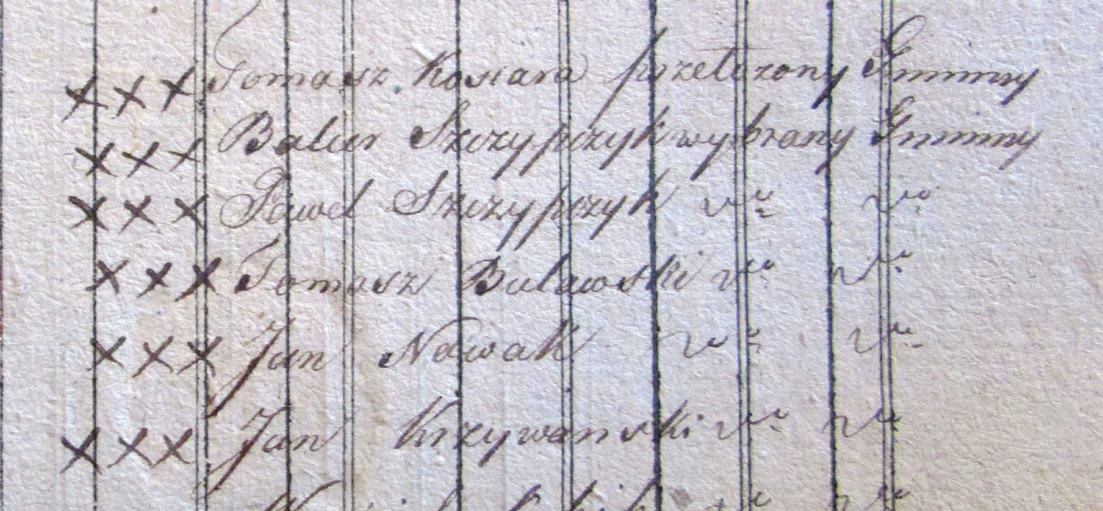 ××× Tomasz Kosiara przełożony Gminny
××× Balcer Szczypczyk wybrany Gminny
××× Paweł Szczypczyk do do
××× Tomasz Bulawski do do
××× Jan Nowak do do
××× Jan Krzywanski do do